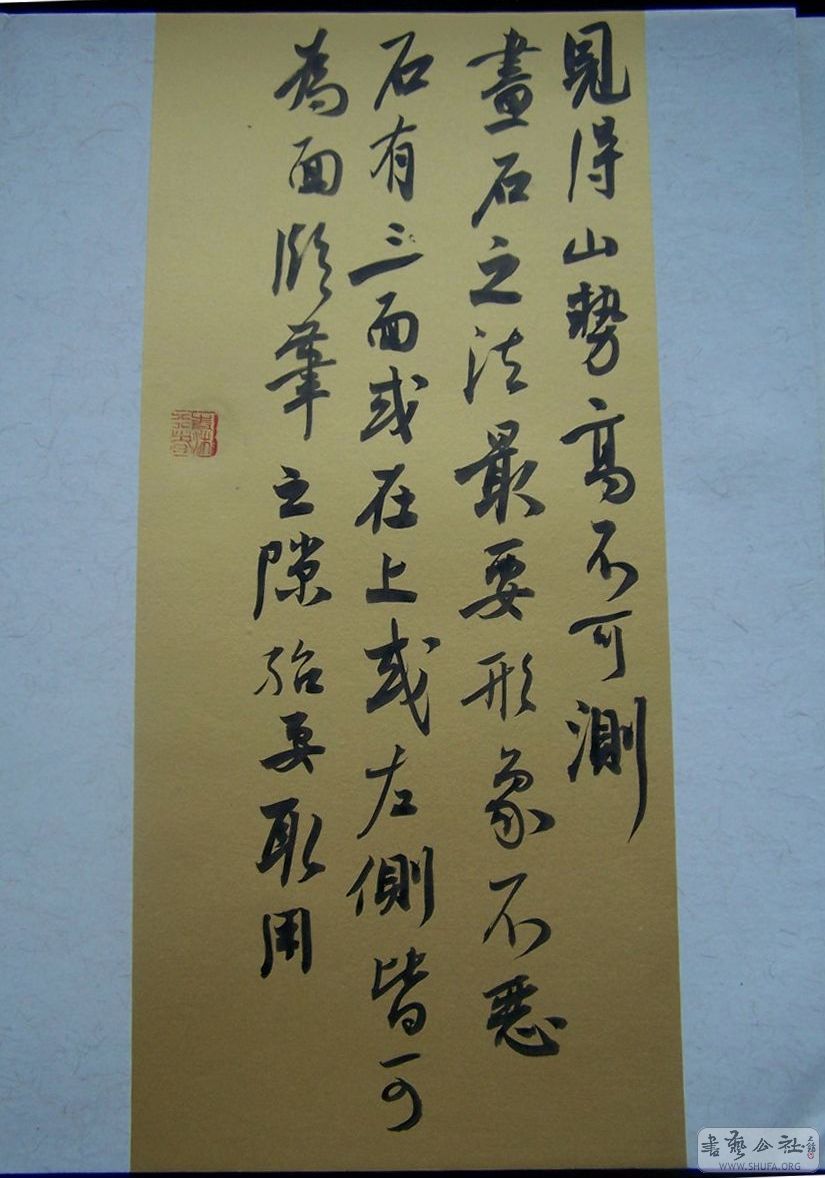 見得山勢高不可測
畫石之法最要形象不惡
石有三面或在上或左側皆可
為面臨筆之隙殆要取用
書藝公社
WWW.SHUFA.ORG